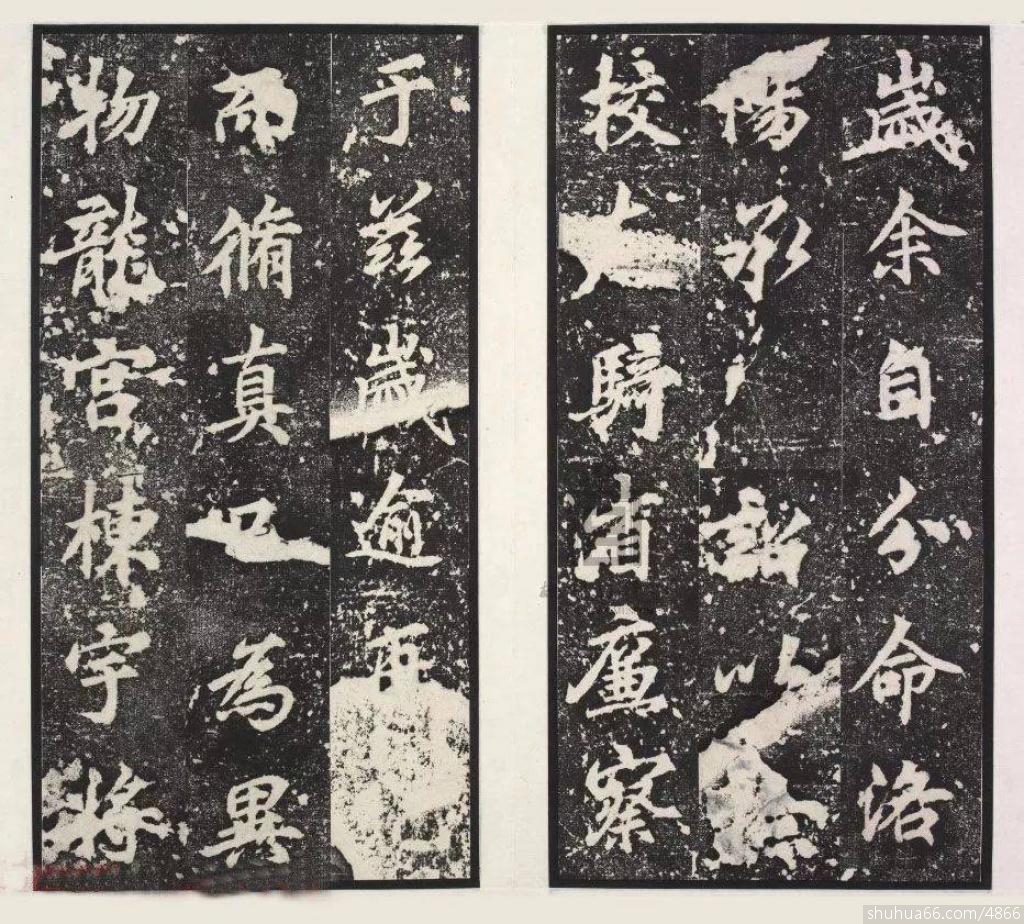 歲余自分命洛
陽承詔以
校左騎省廉察
于茲歲逾再
而脩真已為異
物龍宮棟宇將
shuhua66.com/4866